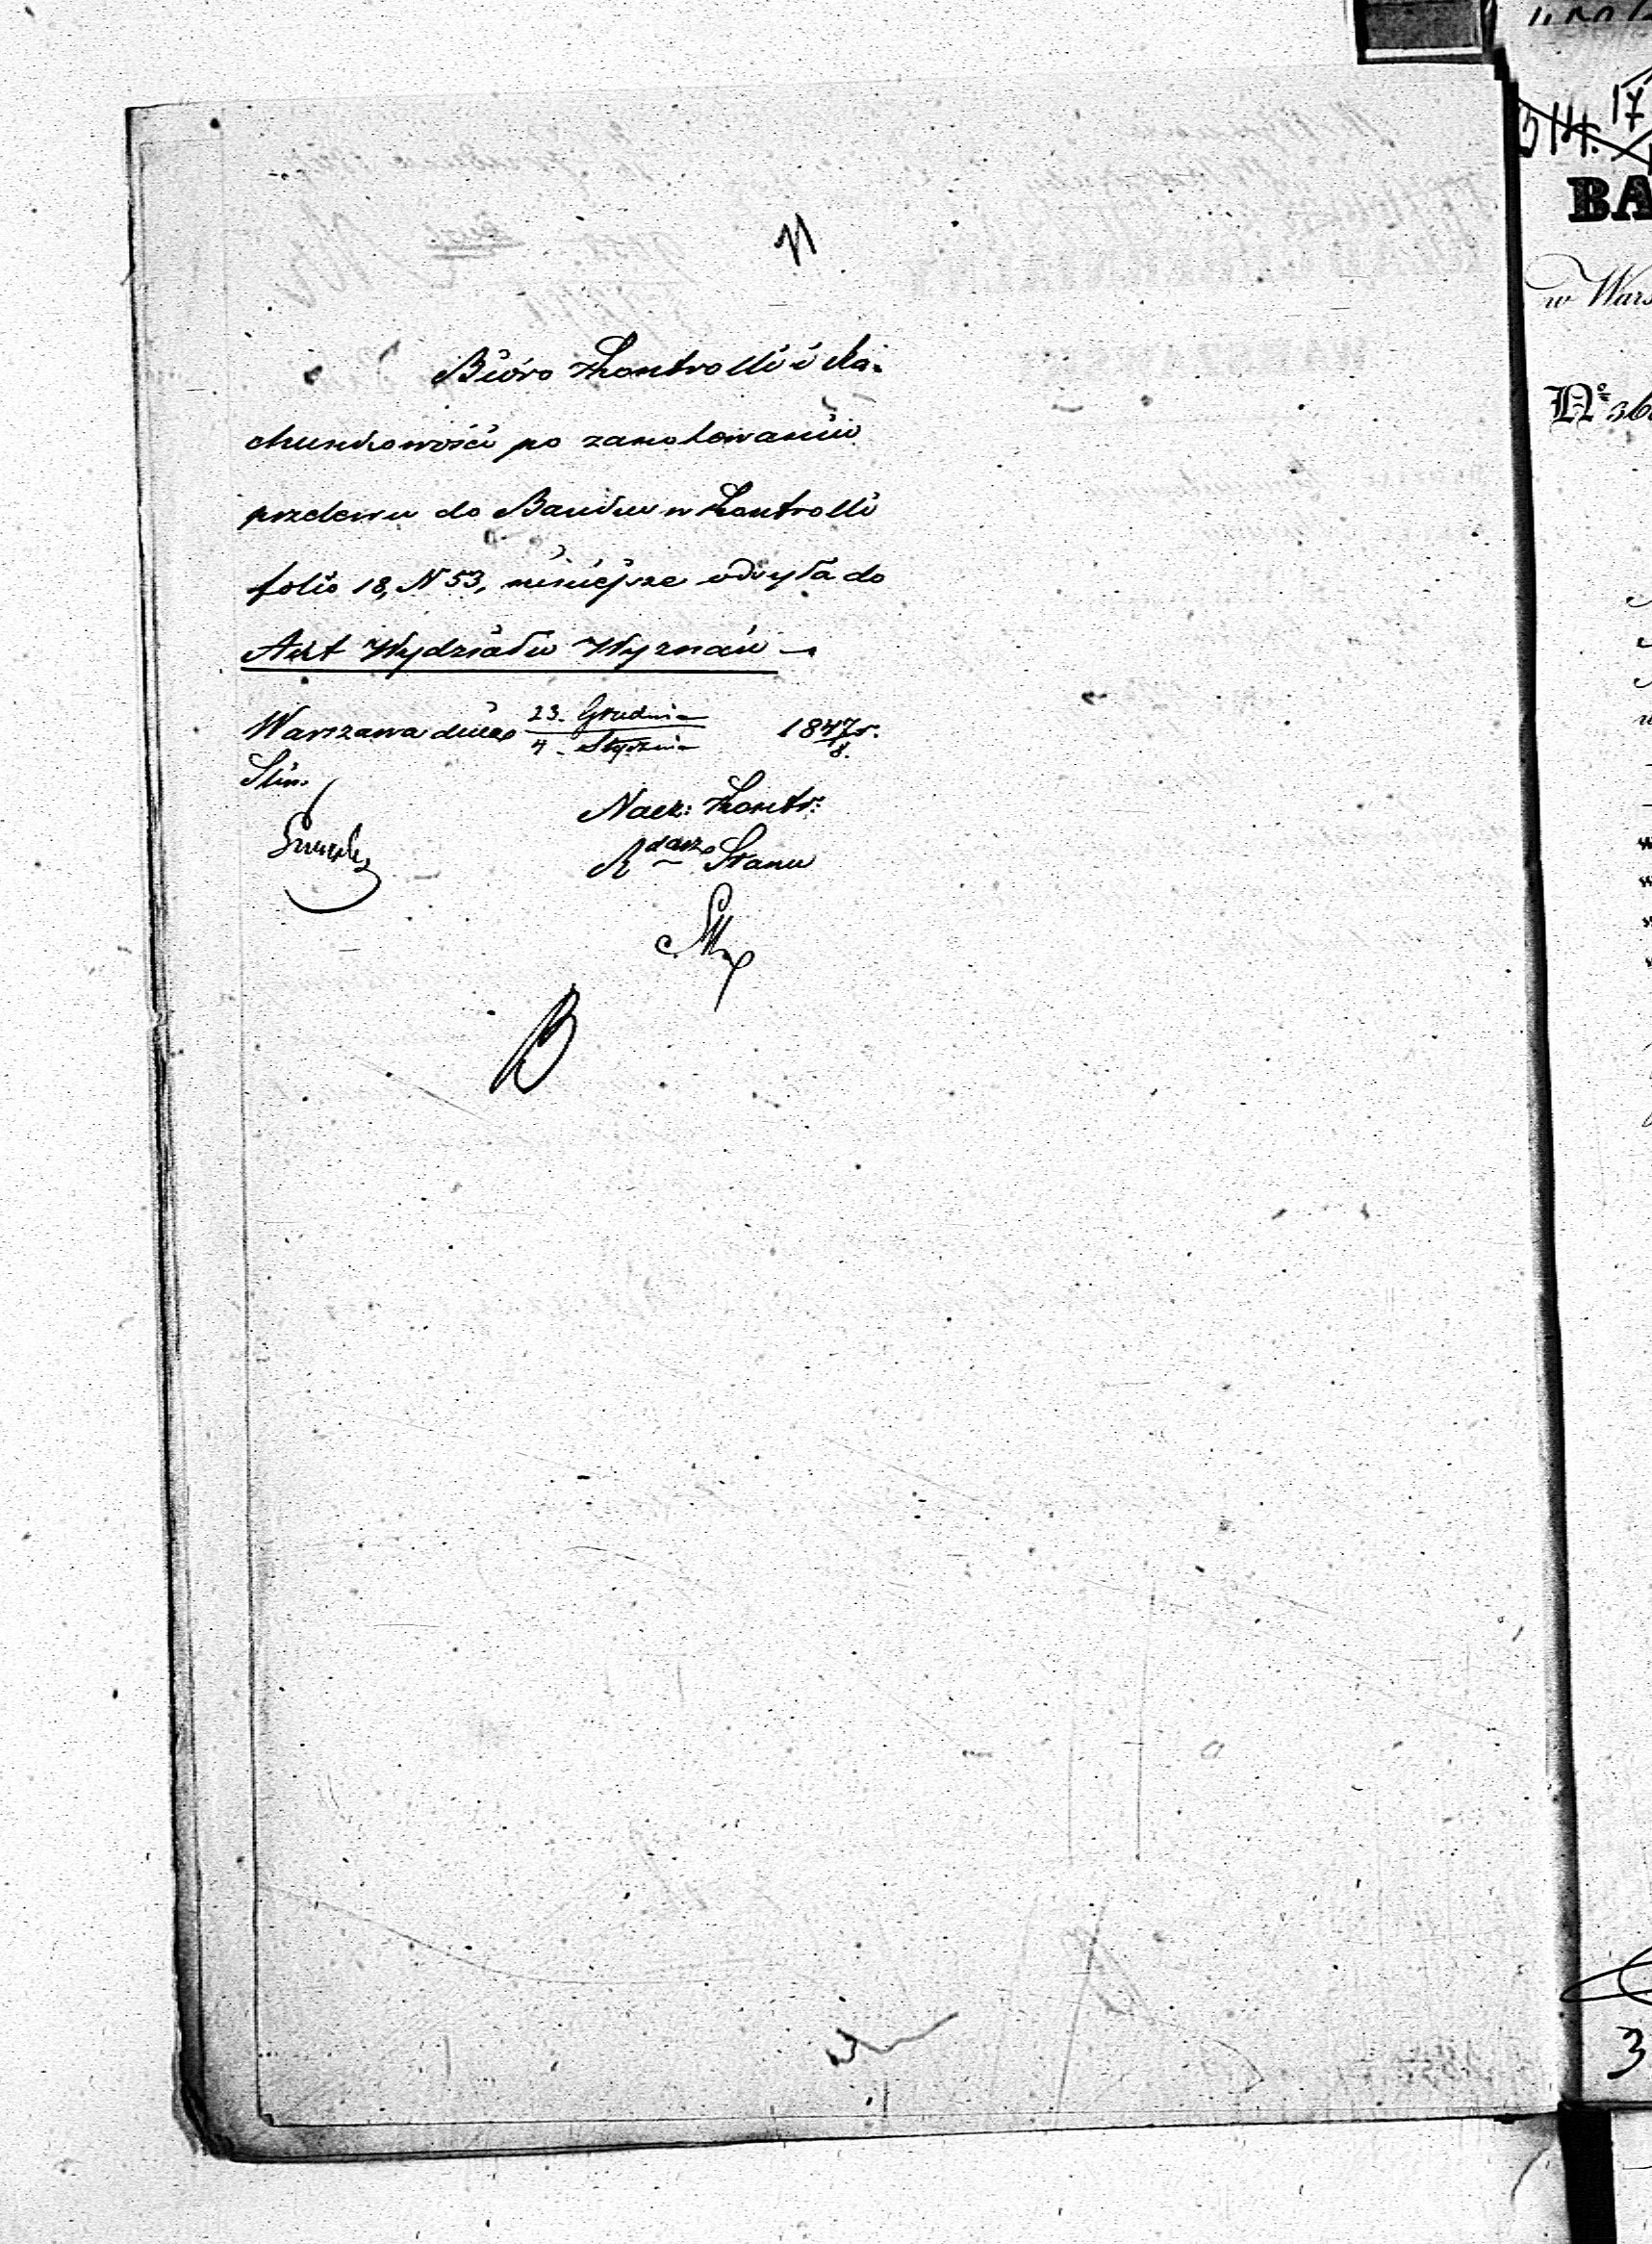 Biuro Kontrolli i Ra-
chunkowości po zanotowaniu
przelewu do Banku w Kontrolli
folio 18, N 53, niniejsze odsyła do
Akt Wydziału Wyznań
Warszawa dnia 23. Grudnia / 4 Stycznia 1847/8 r.
Nacz: Kontr:
R Stanu
B
17
BA
w Wars
No
3